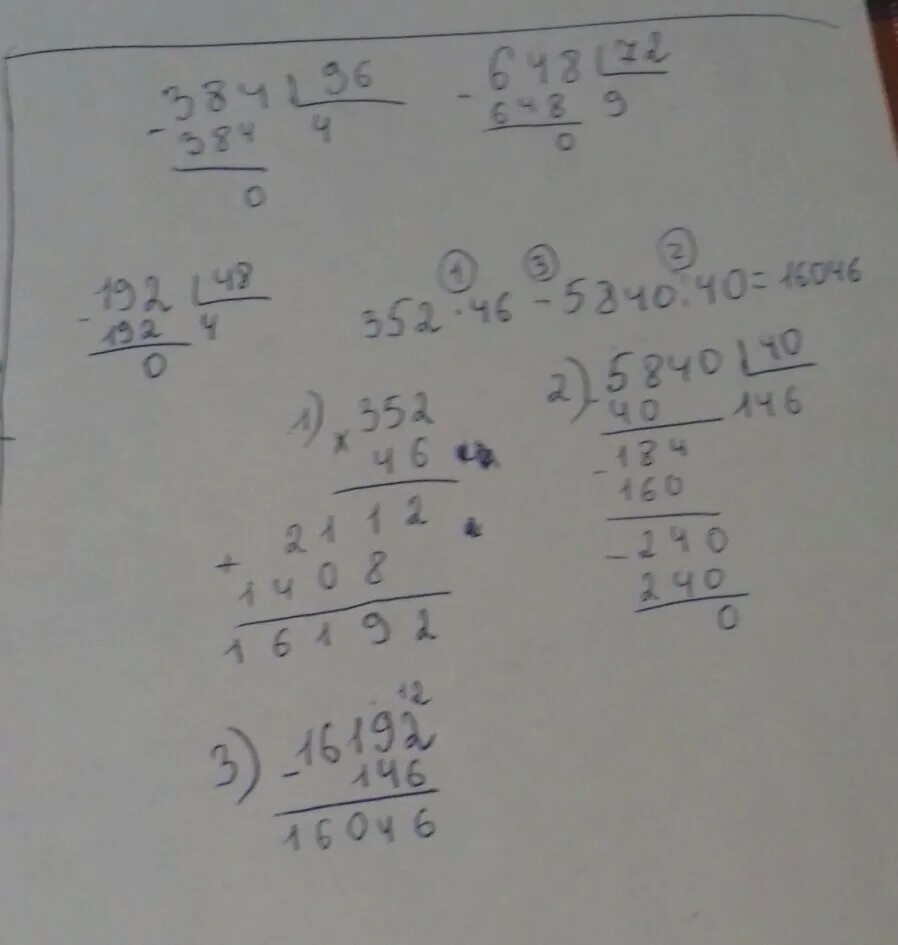 384 96 - 648 72
- 384 4 648 9
0 0
- 192 48
192 4
0
1 3 2
352 · 46 - 5840 : 40 = 16046
1) × 352
46
2112
+ 1408
16192
2) - 5840 40
40 146
- 184
160
- 240
240
0
12
3) - 16192
146
16046